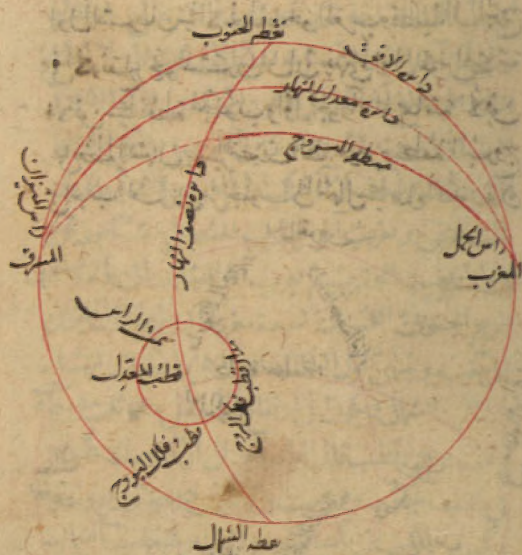 نقطه الجنوب
دايره الافق
دايره معدل النهار
منطقه البروج
دايره نصف النهار
راس الميزان
المشرق
راس الحمل
المغرب
سمت الراس
قطب المعدل
مدار قطب فلك البروج
قطب فلك البروج
نقطه الشمال